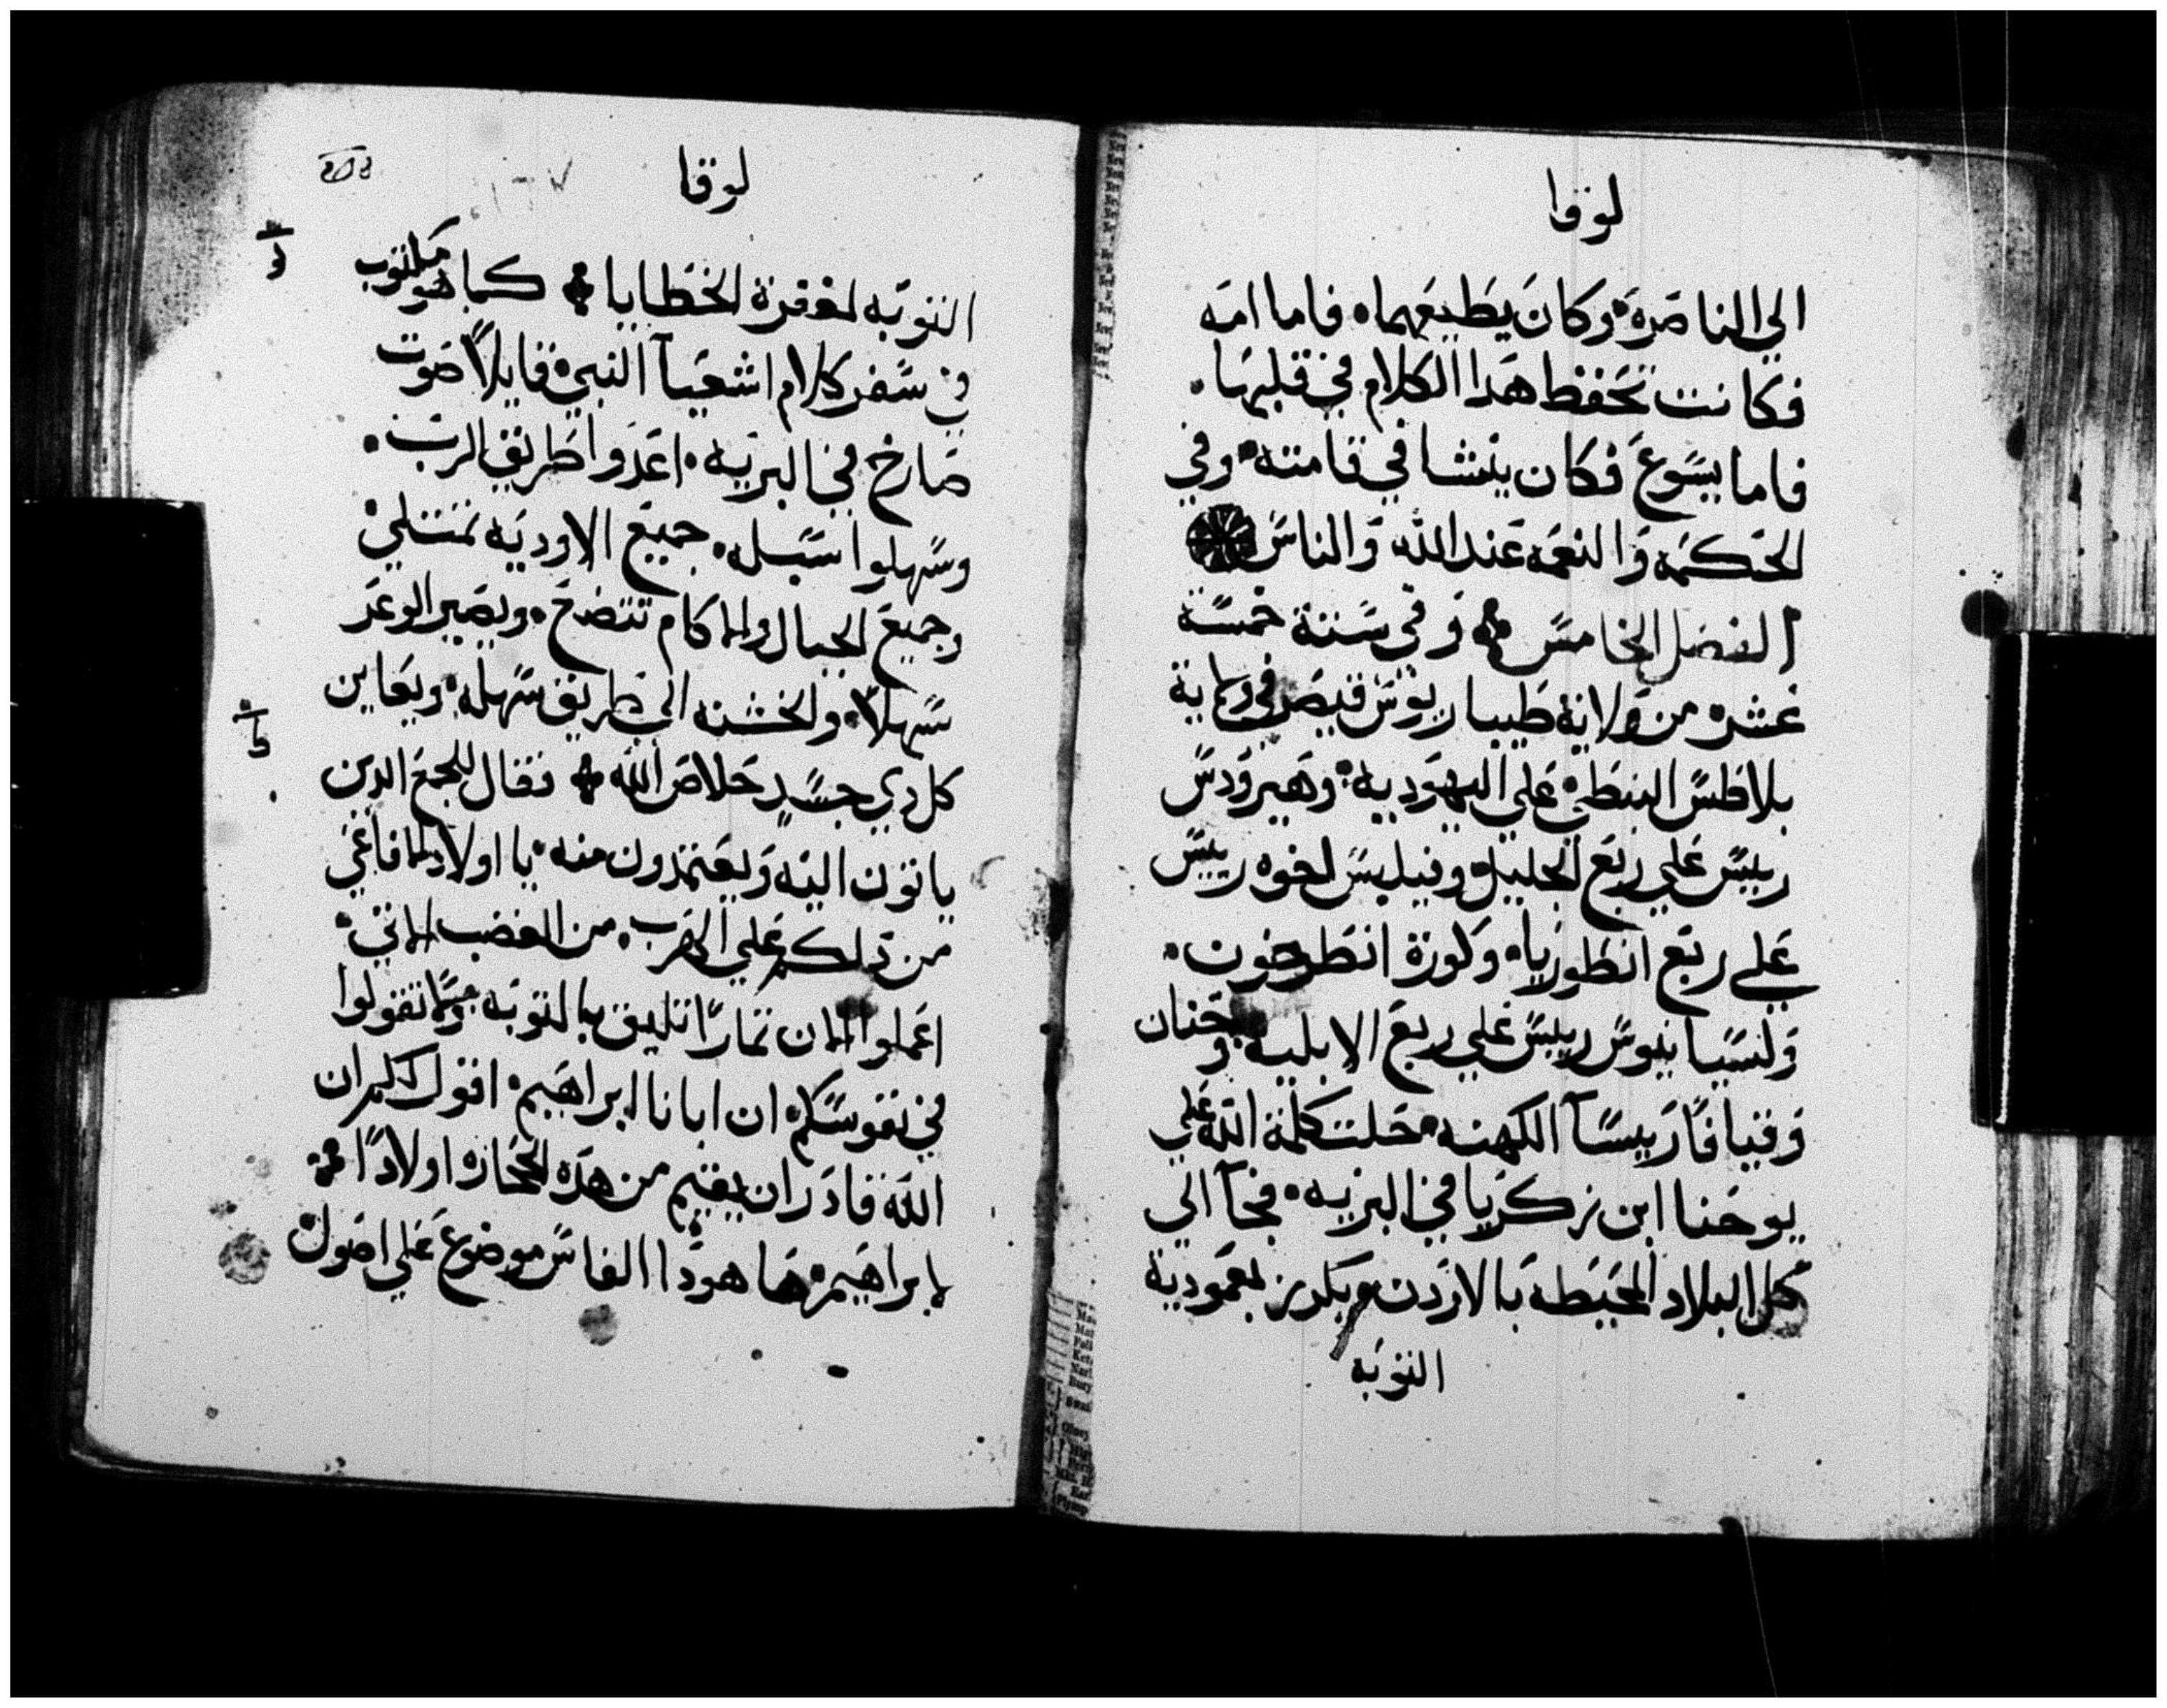 لوقا
الي الناصره وكان يطيعهما فاما امه
فكانت تحفظ هدا الكلام في قلبها
فاما يسوع فكان ينشا في قامته وفي
الحكمه والنعمه عند الله والناس
الفصل الخامس وفي سنة خمسة
عشره من ولاية طيباريوس قيصر في ولاية
بلاطس النبطي علي اليهوديه وهيرودس
رييس علي ربع الجليل وفيلبس اخوه رييس
علي ربع انطوريا وكورة انطرخون
ولسيانيوس رييس علي ربع الابليه وحنان
وقيافا رييسا الكهنه حلت كلمة الله علي
يوحنا ابن زكريا في البريه فجآ الي
كل البلاد المحيطه بالاردن ويكرز بمعمودية
التوبه
لوقا
التوبه لمغفرة الخطايا كما هو مكتوب
في سفر كلام اشعيآ النبي قايلاً صوت
صارخ في البريه اعدوا طريق الرب
وسهلوا سبله جميع الاوديه تمتلي
وجميع الجبال والاكام تتضح ويصير الوعر
سهلاً والخشنه الي طريق سهله ويعاين
كل دي جسد خلاص الله فقال للجمع الدين
ياتون اليه ويعتمدون منه يا اولاد الافاعي
من دلكم علي الهرب من الغضب الاتي
اعملوا الان تمارًا تليق بالتوبه ولا تقولوا
في نفوسكم ان ابانا ابراهيم اقول لكم ان
الله قادر ان يقيم من هده الحجاره اولادًا
لابراهيم ها هودا الفاس موضوع علي اصول